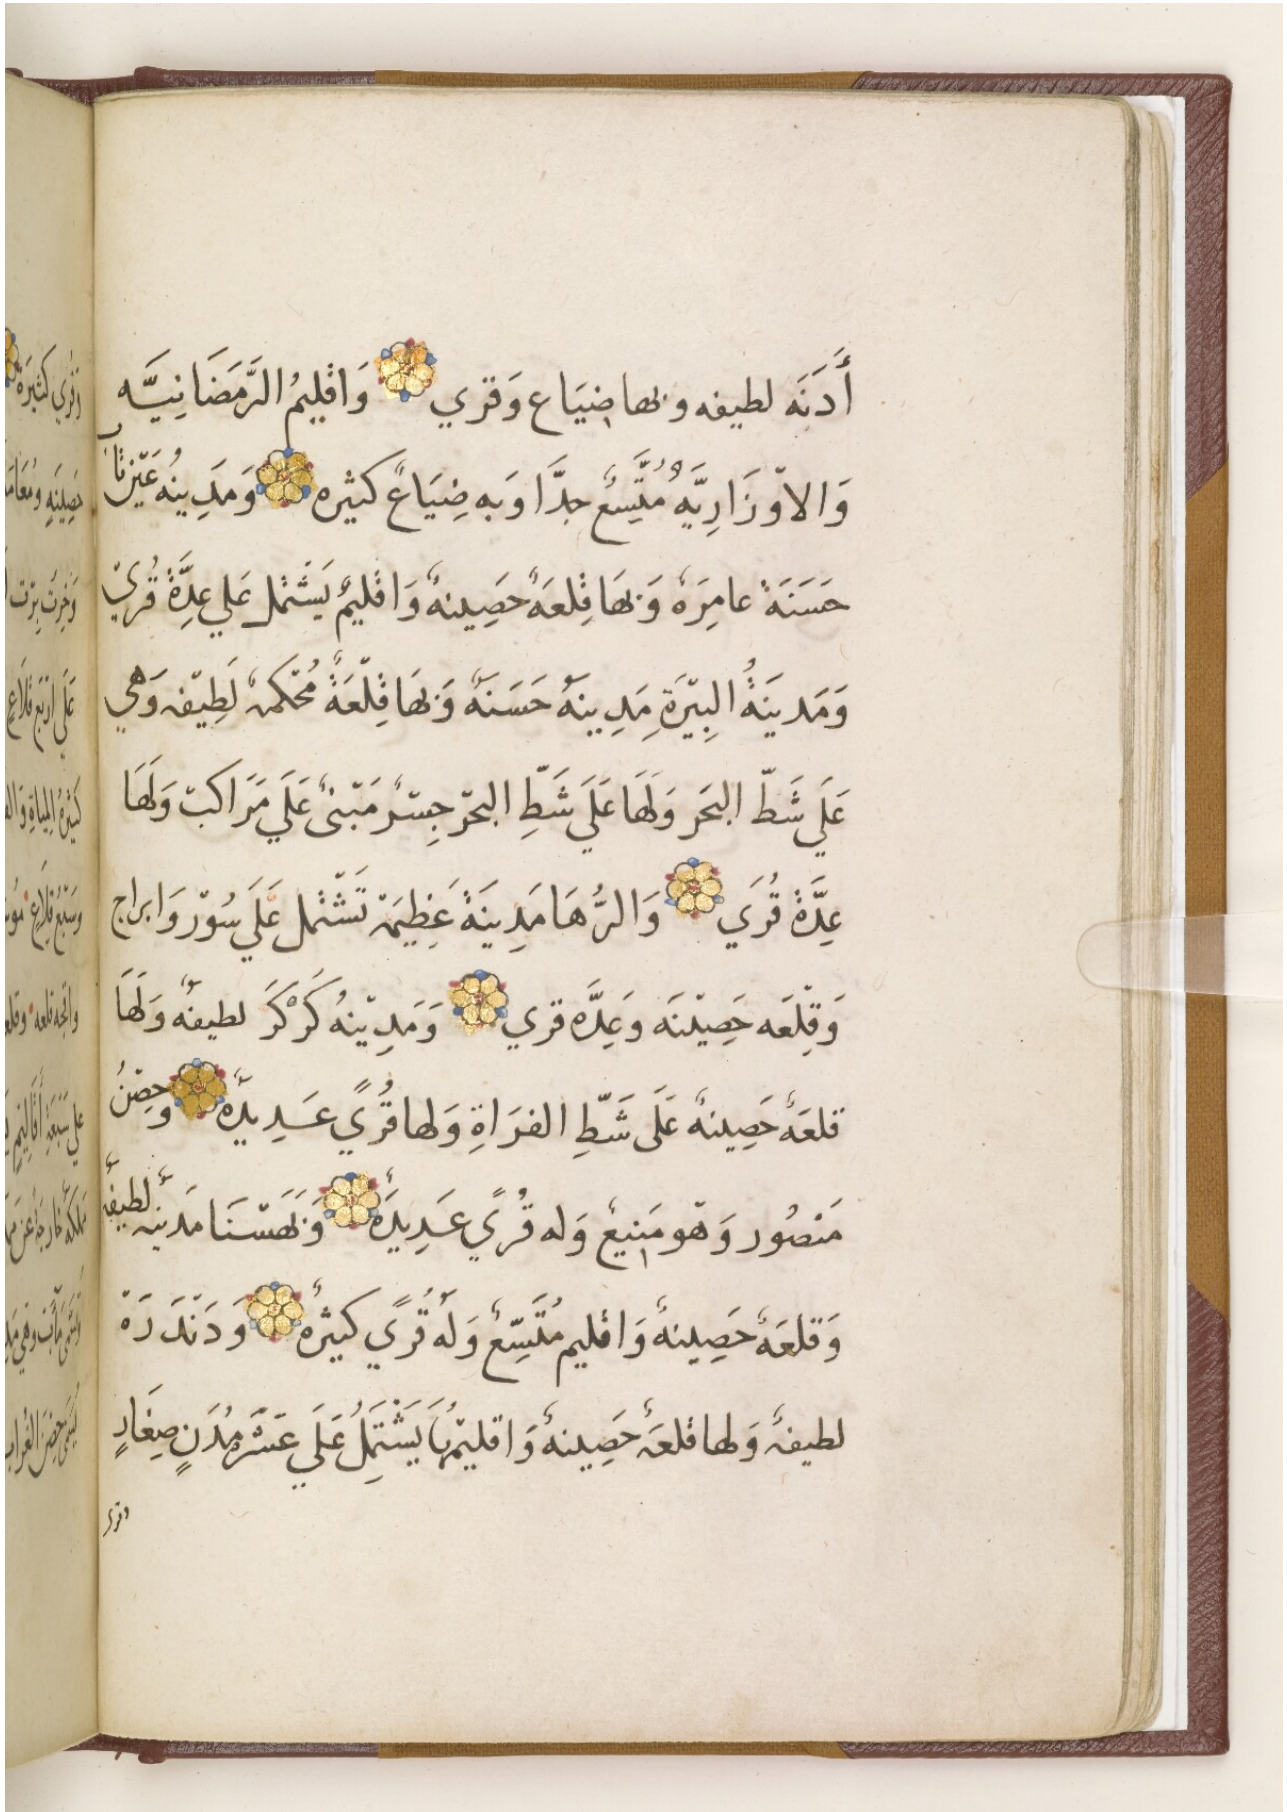 أَدَنَه لطيفه وبها ضِيَاع وَقري وَاقلِيمُ الرَّمَضَانِيَّه
وَالاوْزَارِيَّهُ مُتَّسِعٌ جدًّا وَبه ضِيَاعٌ كثيره وَمَدِينهُ عَيْنتَاب
حَسَنَة عامِرَهٌ وَبهَا قِلعَهٌ حَصِينهٌ وَاقليمٌ يَشْتمل عَلي عِدَّةَ قُريً
وَمَدينَةُ البِيْرَة مَدِينهٌ حَسَنَهٌ وَبهَا قِلْعَةٌ مُحْكمهٌ لَطِيْفه وَهي
عَلَي شَطّ البحَر وَلَهَا عَلَي شَطِّ البحْر جِسْرٌ مَبْنىٌ عَلَي مَرَاكبْ وَلَهَا
عِدَّةَ قُرَي وَالرُّهَا مَدِينَة عَظِيمَة تَشْتمل عَلَي سُوْر وَابراج
وَقِلْعَه حَصِيْنَه وَعِدَّه قري وَمَدِيْنهُ كَرْكَرَ لطيفهٌ وَلَهَا
قلعَهٌ حَصِينهٌ عَلَى شَطِّ الفرَاةِ وَلها قُرًي عَدِيدَهٌ وَحِصْنُ
مَنْصُور وَهو مَنيعٌ وَله قُرًي عَدِيدَهٌ وَبَهَسْنَا مَدينه لطيفهٌ
وَقلعَهٌ حَصِينهٌ وَاقليم مُتَّسِعٌ وَلهُ قُرًي كثيرهٌ وَدَنْدَرَهْ
لطيفهٌ وَلها قلعَهٌ حَصِينهٌ وَاقليمُهَا يَشْتَمِلُ عَلَي عَشْرَه مُدَنٍ صِغَارٍ
وقري